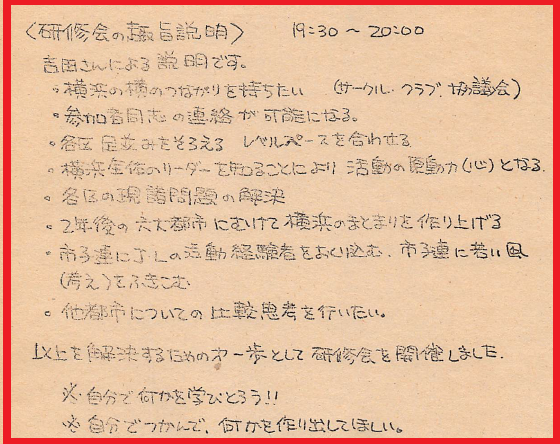 〈研修会の趣旨説明〉 19:30 ～ 20:00
吉田さんによる説明です。
・横浜の横のつながりを持ちたい (サークル.クラブ.協議会)
・参加者同志の連絡が可能になる。
・各区 足並みをそろえる レベルペースを合わせる
・横浜全体のリーダーを知ることにより 活動の原動力(心)となる.
・各区の現諸問題の解決
・2年後の六大都市にむけて横浜のまとまりを作り上げる
・市子連にJ.Lの活動経験者をおくり込む. 市子連に若い風
(考え)をふきこむ
・他都市についての比較思考を行いたい。
以上を解決するための才一歩として 研修会を開催しました.
※自分で何かを学びとろう!!
※自分でつかんで、何かを作り出してほしい。